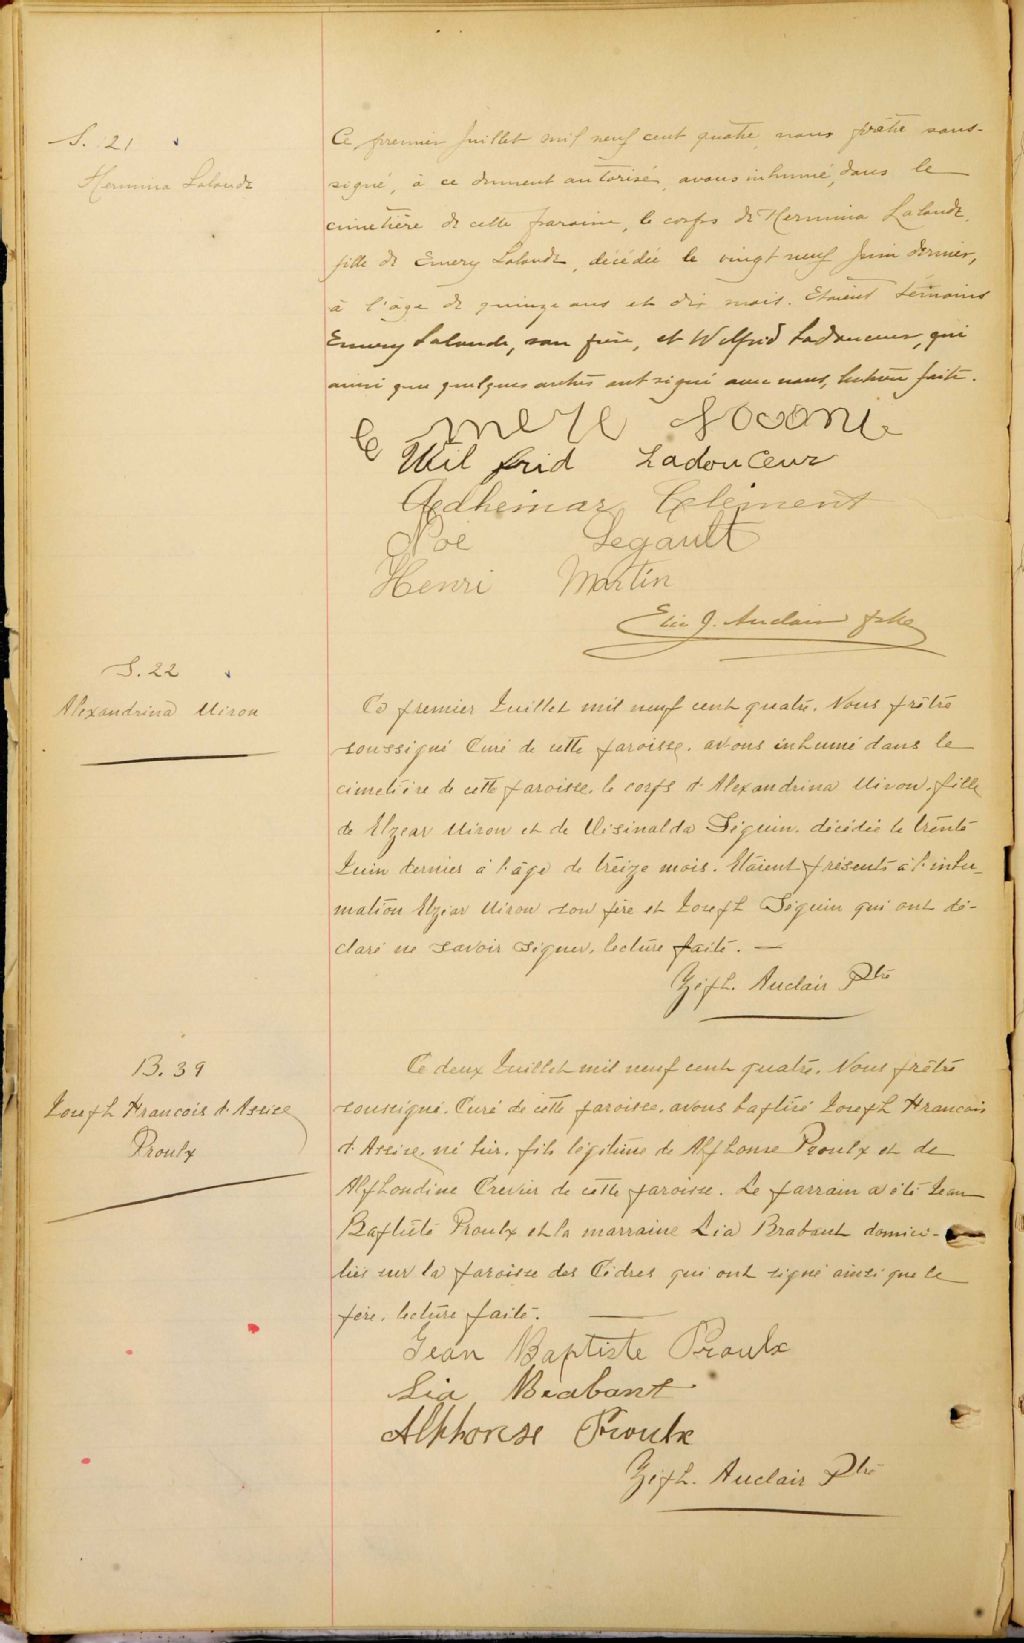 S. 21
Hermina Lalonde
Ce premier Juillet mil neuf cent quatre, nous prêtre sous-
signé, à ce dument autorisé, avons inhumé, dans le
cimetière de cette paroisse, le corps de Hermina Lalonde,
fille de Emery Lalonde, décédée le vingt neuf Juin dernier,
à l'âge de quinze ans et dix mois. Etaient témoins
Emery Lalonde, son père, et Wilfrid Ladouceur, qui
ainsi que quelques autres ont signé avec nous, lecture faite.
Wilfrid Ladouceur
Adhémar Clément
Noé Legault
Henri Martin
Elie J. Auclair ptre
S. 22
Alexandrina Miron
Ce premier Juillet mil neuf cent quatre. Nous prêtre
soussigné Curé de cette paroisse. avons inhumé dans le
cimetière de cette paroisse. le corps d'Alexandrina Miron, fille
de Elzear Miron et de Séguin. décédée le trente
Juin dernier à l'âge de treize mois. Etaient présents à l'inhu-
mation Elzear Miron son père et Joseph Séguin qui ont dé-
claré ne savoir signer. lecture faite. —
Zéph. Auclair Ptre
B. 39
Joseph Francois d'Assise
Proulx
Ce deux Juillet mil neuf cent quatre. Nous prêtre
soussigné. Curé de cette paroisse. avons baptisé Joseph Francois
d'Assise, né hier. fils légitime de Alphonse Proulx et de
Alphondine Crevier de cette paroisse. Le parrain a été Jean
Baptiste Proulx et la marraine Lia Brabant domici-
liés sur la paroisse des Cèdres qui ont signé ainsi que le
père. lecture faite. —
Jean Baptiste Proulx
Lia Brabant
Alphonse Proulx
Zéph. Auclair Ptre